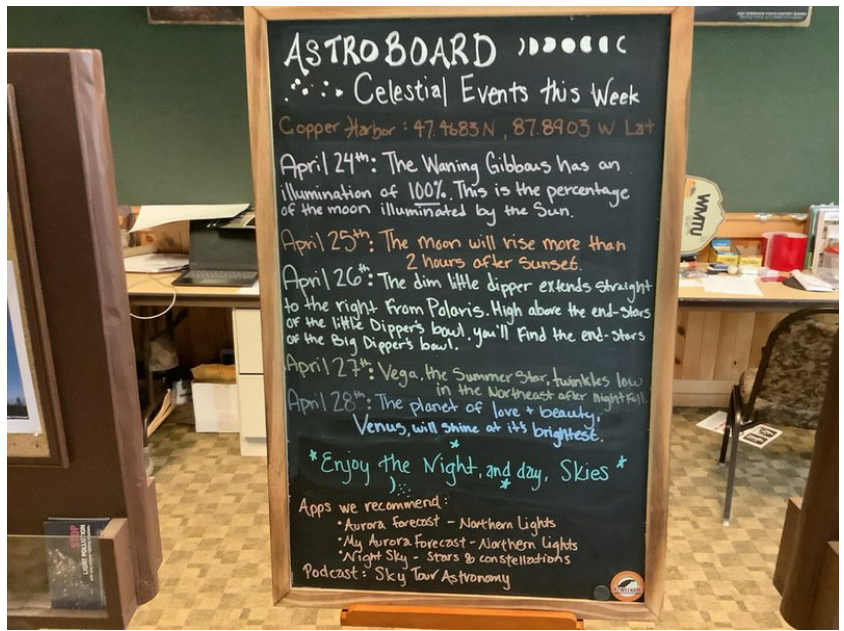 ASTROBOARD
Celestial Events this Week
Copper Harbor : 47.4683 N , 87.8903 W Lat
April 24th: The Waning Gibbous has an
illumination of 100%. This is the percentage
of the moon illuminated by the Sun.
April 25th: The moon will rise more than
2 hours after sunset.
April 26th: The dim little dipper extends straight
to the right from Polaris. High above the end-stars
of the little Dipper's bowl, you'll find the end-stars
of the Big Dipper's bowl.
April 27th: Vega, the Summer Star, twinkles low
in the Northeast after nightfall.
April 28th: The planet of love + beauty,
Venus, will shine at it's brightest.
Enjoy the Night, and day, Skies
Apps we recommend:
• Aurora Forecast - Northern Lights
• My Aurora Forecast - Northern Lights
• Night Sky - Stars & constellations
Podcast: Sky Tour Astronomy
WMTU
STOP
LIGHT POLLUTION